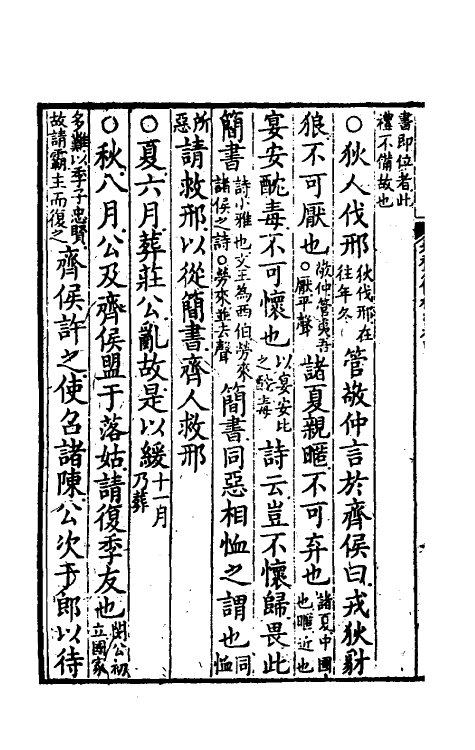 書即位者此禮不備故也
○狄人伐邢狄伐邢在往年冬管敬仲言於齊侯曰戎狄豺
狼不可厭也敬仲管夷吾○厭平聲諸夏親暱不可弃也諸夏中國也暱近也
宴安酖毒不可懷也以宴安比之酖毒詩云豈不懷歸畏此
簡書詩小雅也文王為西伯勞來諸侯之詩○勞來並去聲簡書同惡相恤之謂也同恤
所惡請救邢以從簡書齊人救邢
○夏六月葬莊公亂故是以緩十一月乃葬
○秋八月公及齊侯盟于落姑請復季友也閔公初立國家
多難以季子忠賢故請霸主而復之齊侯許之使召諸陳公次于郎以待